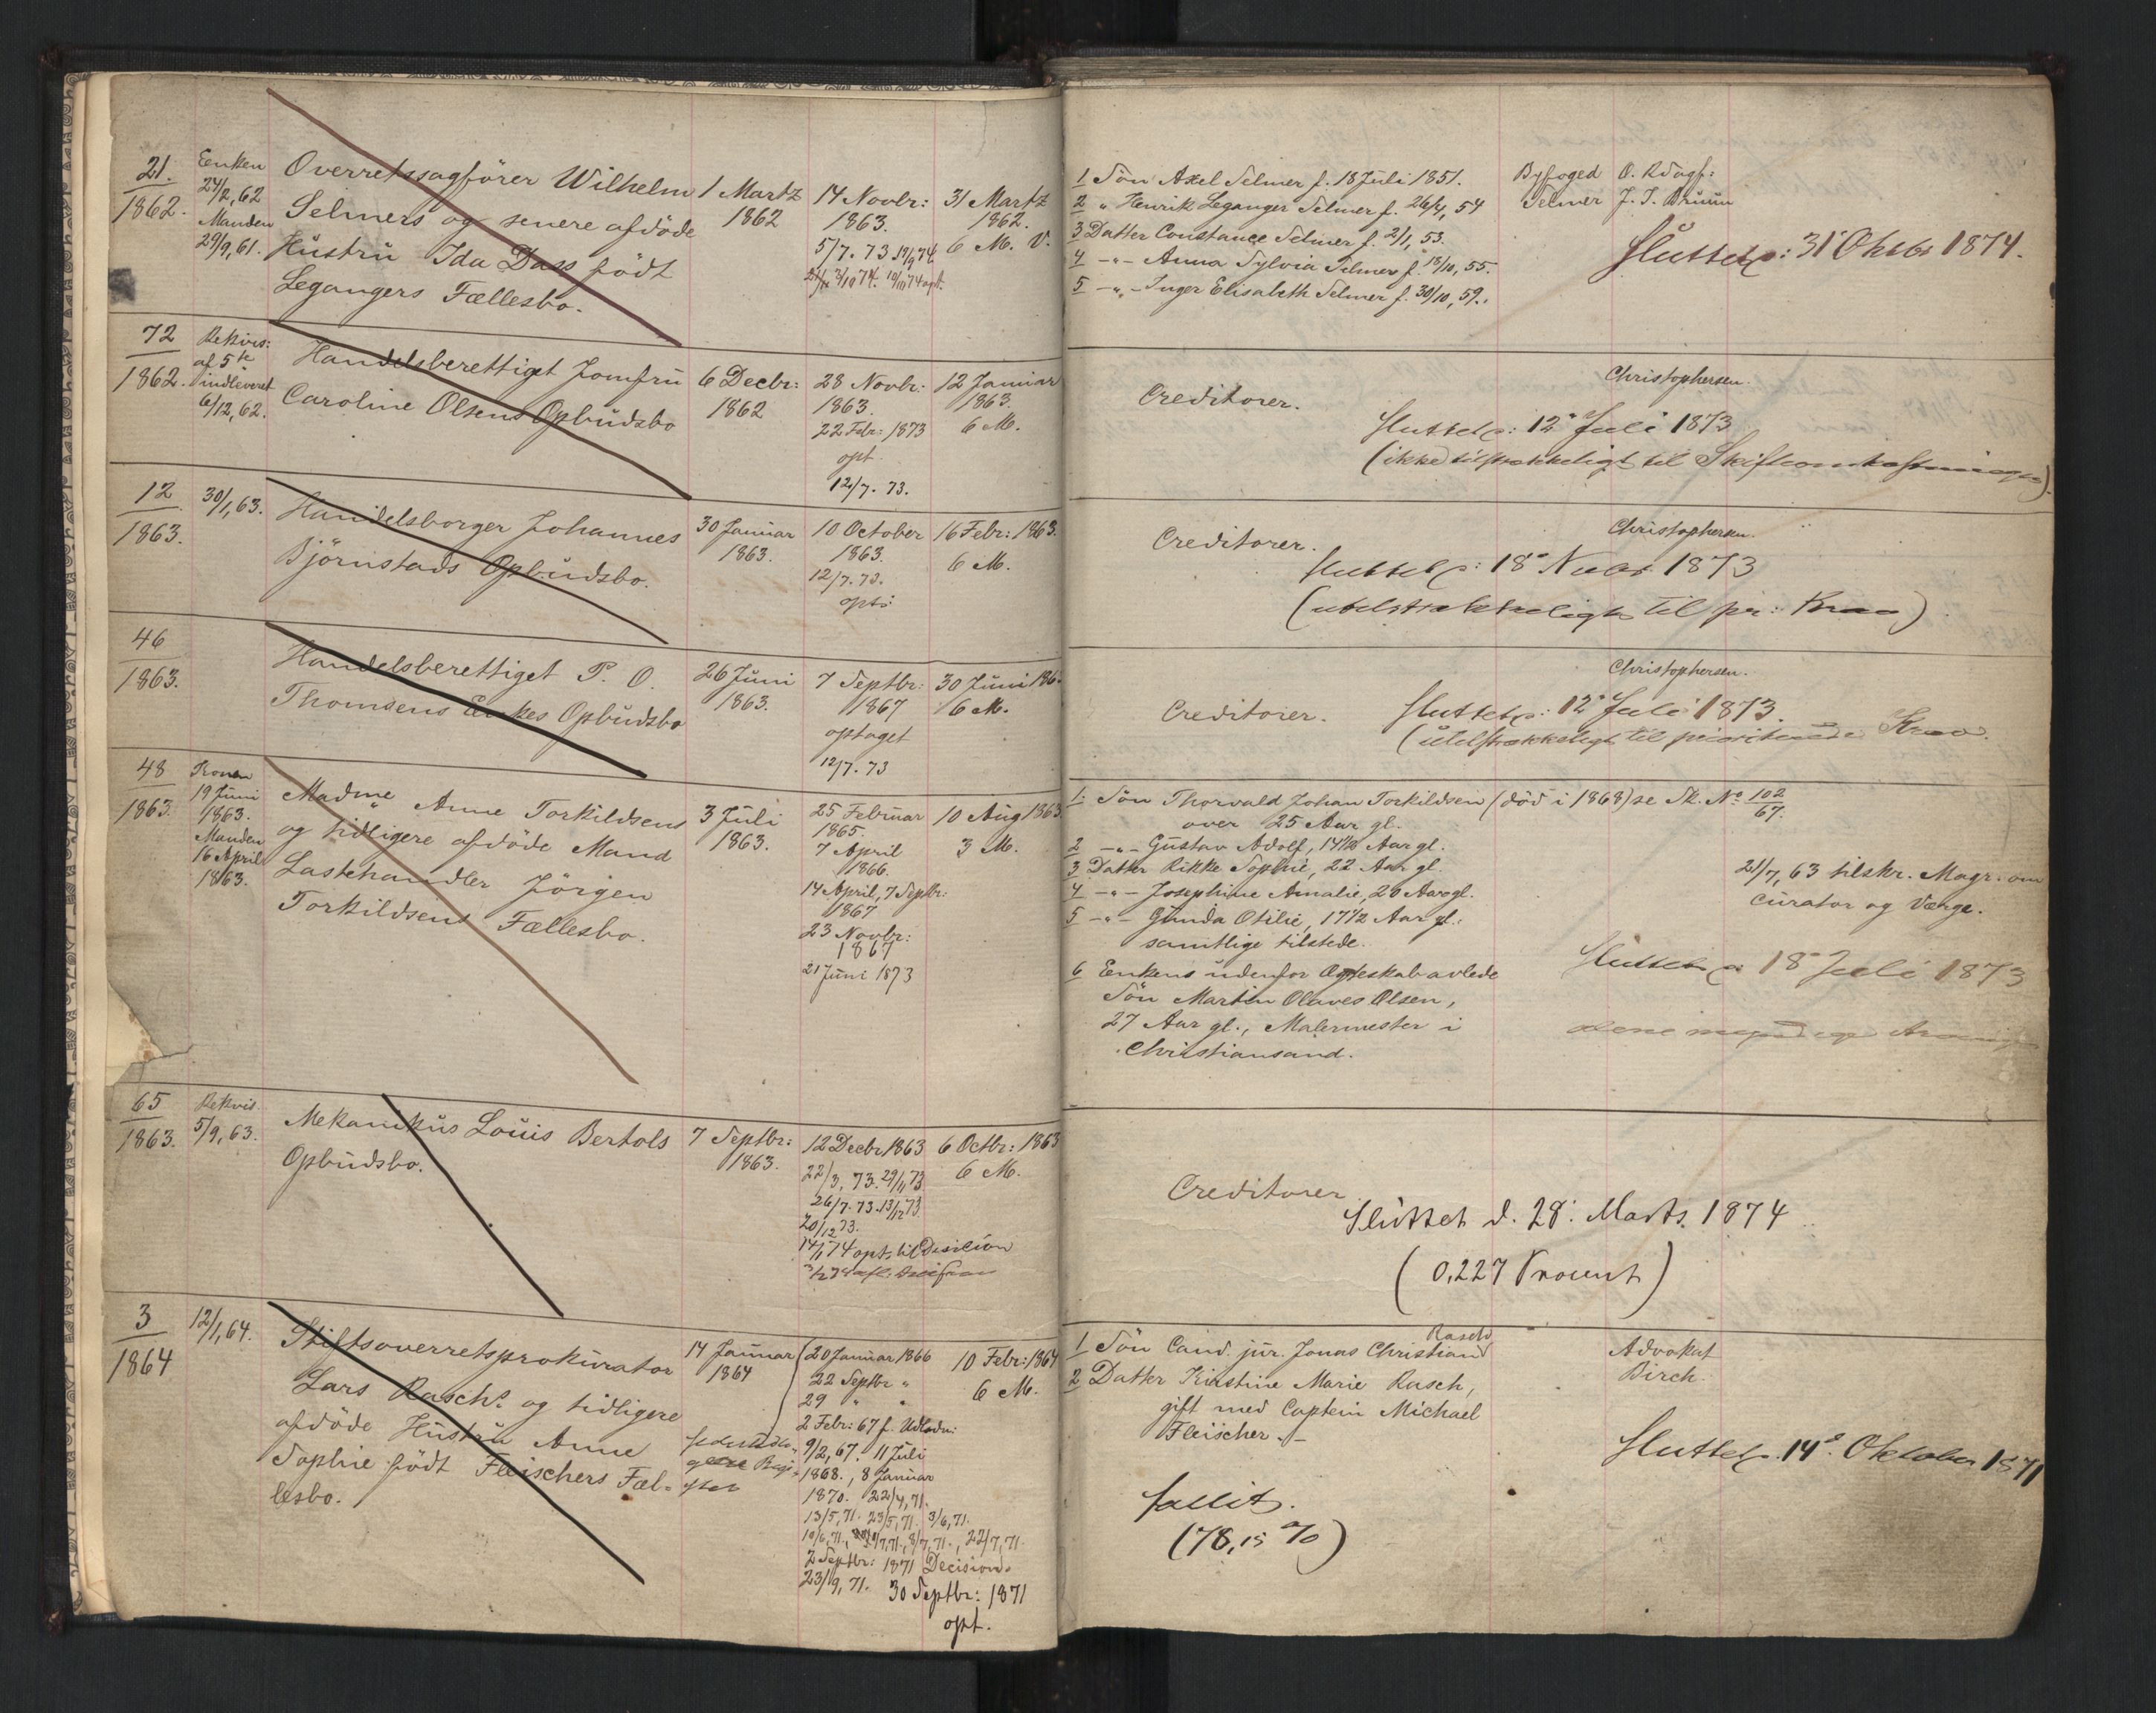 21.
1862.
Enken
24/2, 62
Manden
29/9, 61.
Overretssagförer Wilhelm
Selmers og senere afdöde
Hustru Ida Dass födt
Legangers Fællesbo.
1 Martz
1862
14 Novbr:
1863.
5/7. 73
3/10 74.
31 Martz
1862.
6 M. V.
1 Sön Axel Selmer f. 18 Juli 1851.
2 " Henrik Leganger Selmer f. 26/4, 54
3 Datter Constance Selmer f. 2/1, 53.
4 -"- Anna Sylvia Selmer f. 18/10, 55.
5 -"- Inger Elisabeth Selmer f. 30/10, 59.
Byfoged
Selmer
O. Rdsagf:
J. J. Bruun
Sluttet 31 Oktbr 1874.
72
1862.
Rekvis:
af 5te
indleveret
6/12, 62.
Handelsberettiget Jomfru
Caroline Olsens Opbudsbo
6 Decbr:
1862
28 Novbr:
1863.
22 Febr: 1873
opt.
12/7. 73.
12 Januar
1863.
6 M.
Creditorer.
Christophersen.
Sluttet 12 Juli 1873
(ikke tilstrækkeligt til Skifteomkostninger)
12
1863.
30/1, 63.
Handelsborger Johannes
Björnstads Opbudsbo.
30 Januar
1863.
10 October
1863.
12/7. 73.
opt:
16 Febr: 1863.
6 M.
Creditorer.
Christophersen.
Sluttet 18 Novbr 1873
(utilstrækkeligt til pr: Krav)
46
1863.
Handelsberettiget P. O.
Thomsens Enkes Opbudsbo
26 Juni
1863.
7 Septbr:
1867
optaget
12/7. 73
30 Juni 186
6 M.
Creditorer.
Christophersen.
Sluttet 12 Juli 1873.
(utilstrækkeligt til prioriterede Krav.
48
1863.
Konen
19 Juni
1863.
Manden
16 April
1863.
Madme Anne Torkildsens
og tidligere afdöde Mand
Lastehandler Jörgen
Torkildsens Fællesbo.
3 Juli
1863.
25 Februar
1865.
7 April
1866.
14 April, 7 Septbr:
1867
23 Novbr:
1867
21 Juni 1873
10 Aug 1863
3 M.
1 Sön Thorvald Johan Torkildsen (död i 1868) se Sk. No 102/67.
over 25 Aar gl.
2 -"- Gustav Adolf, 14 1/2 Aar gl.
3 Datter Rikke Sophie, 22 Aar gl.
4 -"- Josephine Amalie, 20 Aar gl.
5 -"- Gunda Otilie, 17 1/2 Aar gl.
samtlige tilstede.
6 Enkens udenfor Ægteskab avlede
Sön Martin Olaves Olsen,
27 Aar gl., Malermester i
Christiansand.
21/7, 63 tilskr. Magr. om
Curator og Værge.
Sluttet 18 Juli 1873
65
1863.
Rekvis
5/9, 63.
Mekanikus Louis Bertols
Opbudsbo.
7 Septbr:
1863.
12 Decbr 1863
22/3, 73. 29/11 73
26/7. 73. 13/12 73.
20/12 73.
14/1 74 opt. til Decision
6 Octbr: 1863
6 M.
Creditorer.
Sluttet d. 28. Marts 1874
(0,227 Procent)
3
1864
12/1, 64.
Stiftsoverretsprokurator
Lars Rasch's og tidligere
afdöde Hustru Anne
Sophie födt Fleischers Fæl-
lesbo.
14 Januar
1864
20 Januar 1866
22 Septbr "
29 " "
2 Febr: 67 f. Udlodn:
9/2, 67. 11 Juli
1868., 8 Januar
1870. 22/4, 71.
13/5, 71. 23/5, 71. 3/6, 71.
10/6, 71., 8/7, 71., 22/7, 71.
2 Septbr: 1871 Decision.
23/9, 71. 30 Septbr: 1871
opt.
10 Febr: 1864
6 M.
1 Sön Cand. jur. Jonas Christian Rasch
2 Datter Kirstine Marie Rasch,
gift med Captein Michael
Fleischer.
Advokat
Birch.
Sluttet 14 Oktober 1871
fallit.
(78,15 %)